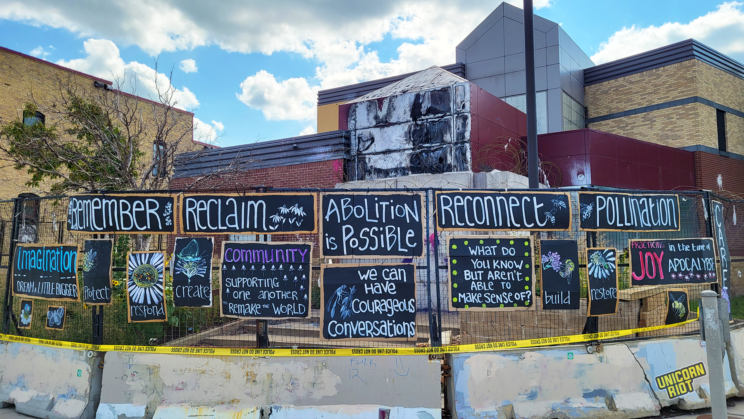 REMEMBER
RECLAIM
ABOLITION
is POSSIBLE
RECONNECT
POLLINATION
IMAGINATION
DREAM a LITTLE BIGGER
Protect
respond
create
COMMUNITY
SUPPORTING
ONE ANOTHER
REMAKE the WORLD
WE CAN HAVE
COURAGEOUS
CONVERSATIONS
WHAT DO YOU
KNOW
BUT AREN'T
ABLE TO
MAKE SENSE OF?
build
restore
PRACTICING
JOY in the FACE of
APOCALYPSE
POLICE LINE DO NOT CROSS
UNICORN
RIOT